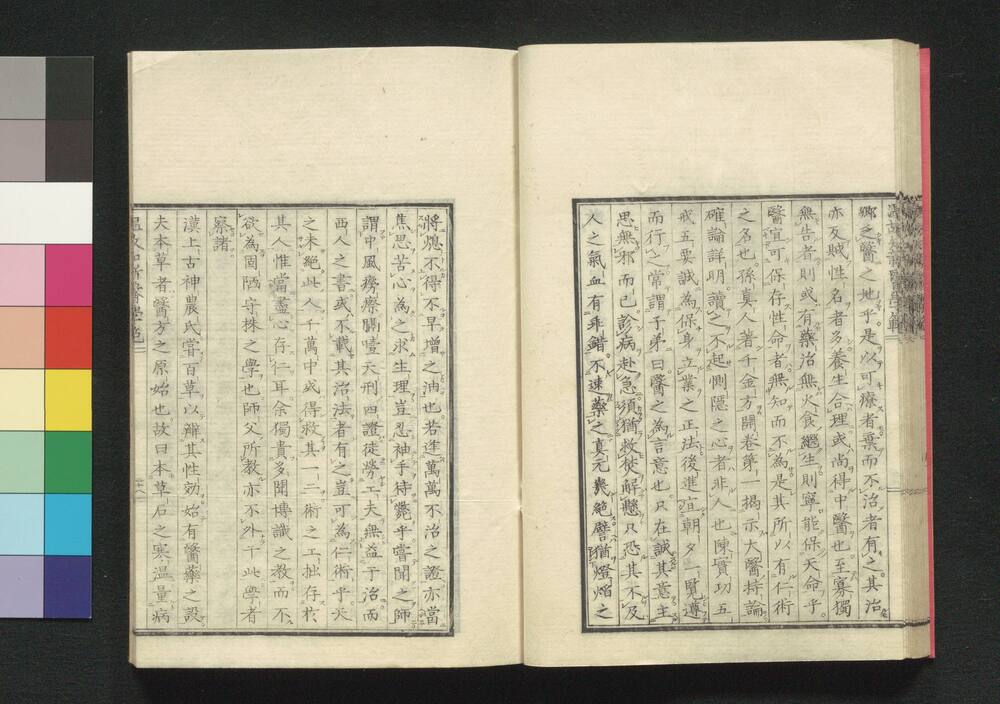 鄉之醫之地乎是以可療者棄而不治者有之其治
亦反賊性名者多養生合理或尚得中醫也至寡獨
無告者則或有藥治無火食繼生則寧能保天命乎
醫宜可保存性命者無知而不為是其所以有仁術
之名也孫真人著千金方開卷第一揭示大醫持論
確論詳明讀之不起惻隱之心者非人也陳實功五
戒五要誠為保身立業之正法後進宜朝夕一覽遵
而行之常謂子弟曰醫之為言意也只在誠其意主
思無邪而已診病赴急須猶救徒解懸只恐其不及
人之氣血有乖錯不速藥之真元喪絕譬猶燈熖之
將熄不得不早增之油也若逢萬萬不治之證亦當
焦思苦心為之求生理豈忍袖手待斃乎嘗聞之師
謂中風癆瘵膈噎天刑四證徒勞工夫無益于治而
西人之書或不載其治法者有之豈可為仁術乎天
之未絕此人千萬中或得救其一二術之工拙存於
其人惟當盡心存仁耳余獨貴多聞博識之教而不
欲為固陋守株之學也師父所教亦不外于此學者
察諸
漢上古神農氏嘗百草以辨其性効始有醫藥之設
夫本草者醫方之原始也故曰本草石之寒溫量病